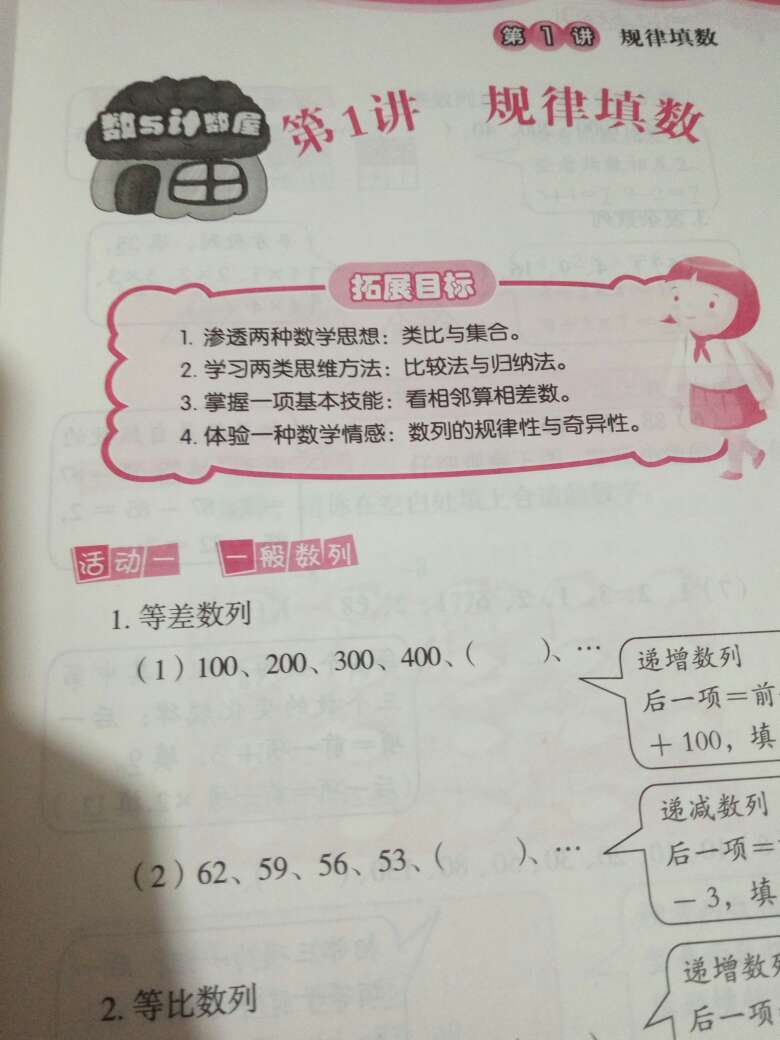 第1讲 规律填数
数与计数屋
第1讲 规律填数
拓展目标
1. 渗透两种数学思想：类比与集合。
2. 学习两类思维方法：比较法与归纳法。
3. 掌握一项基本技能：看相邻算相差数。
4. 体验一种数学情感：数列的规律性与奇异性。
活动一 一般数列
1. 等差数列
（1）100、200、300、400、（ ）、…
递增数列
后一项＝前
＋100，填
（2）62、59、56、53、（ ）、…
递减数列
后一项＝
－3，填
2. 等比数列
递增数列
后一项